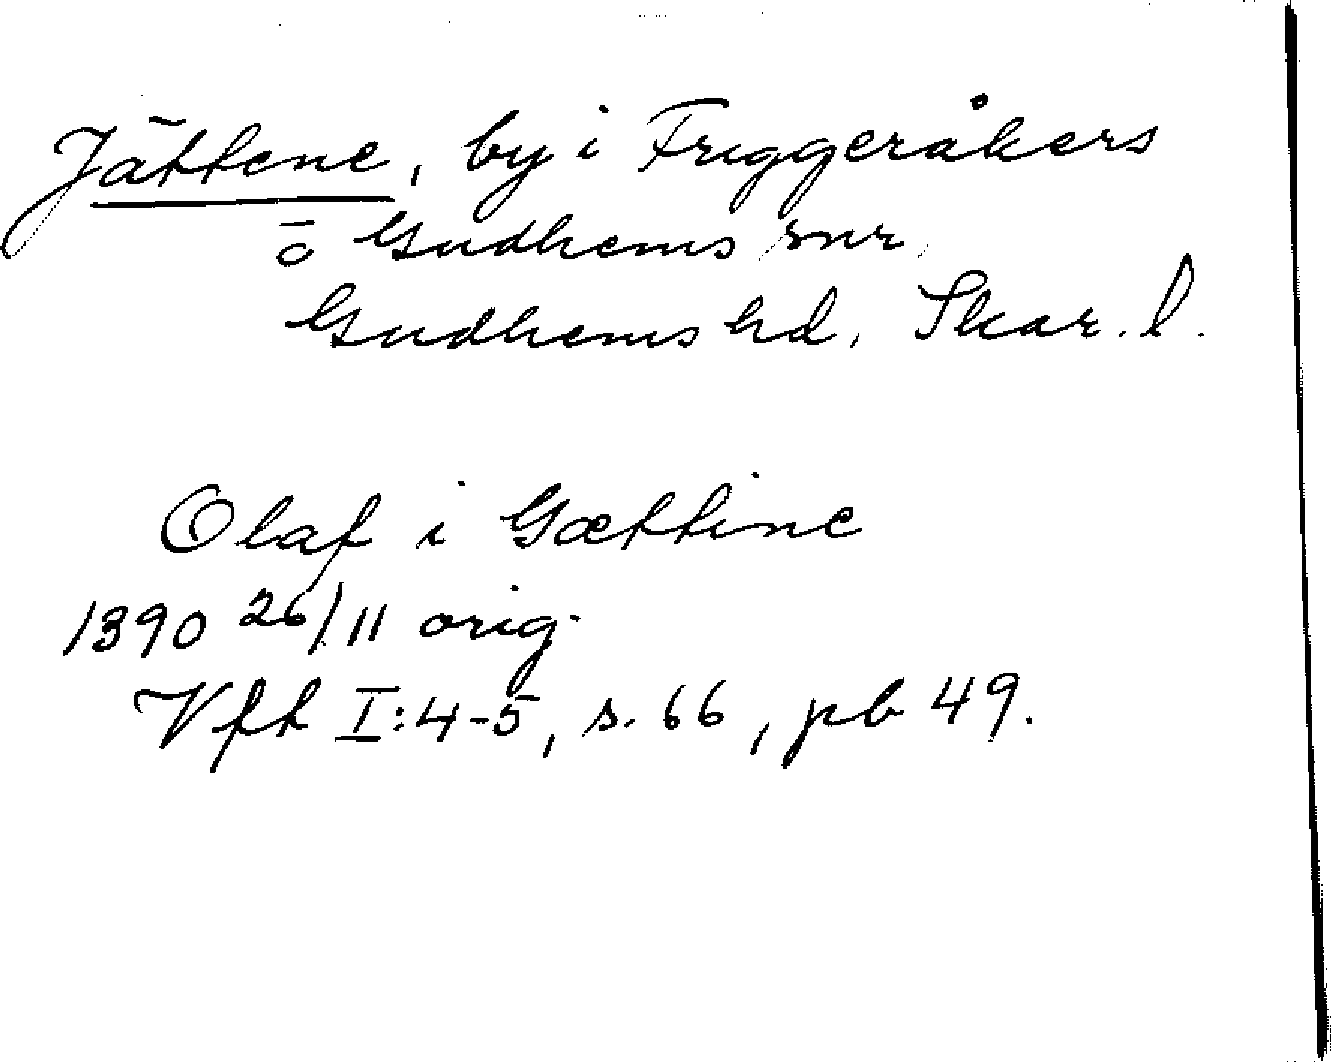 Jättene, by i Friggeråkers
o Gudhems snr,
Gudhems hd, Skar. l.
Olaf i Gættine
1390 26/11 orig.
Vft I:4-5, s. 66, pb 49.